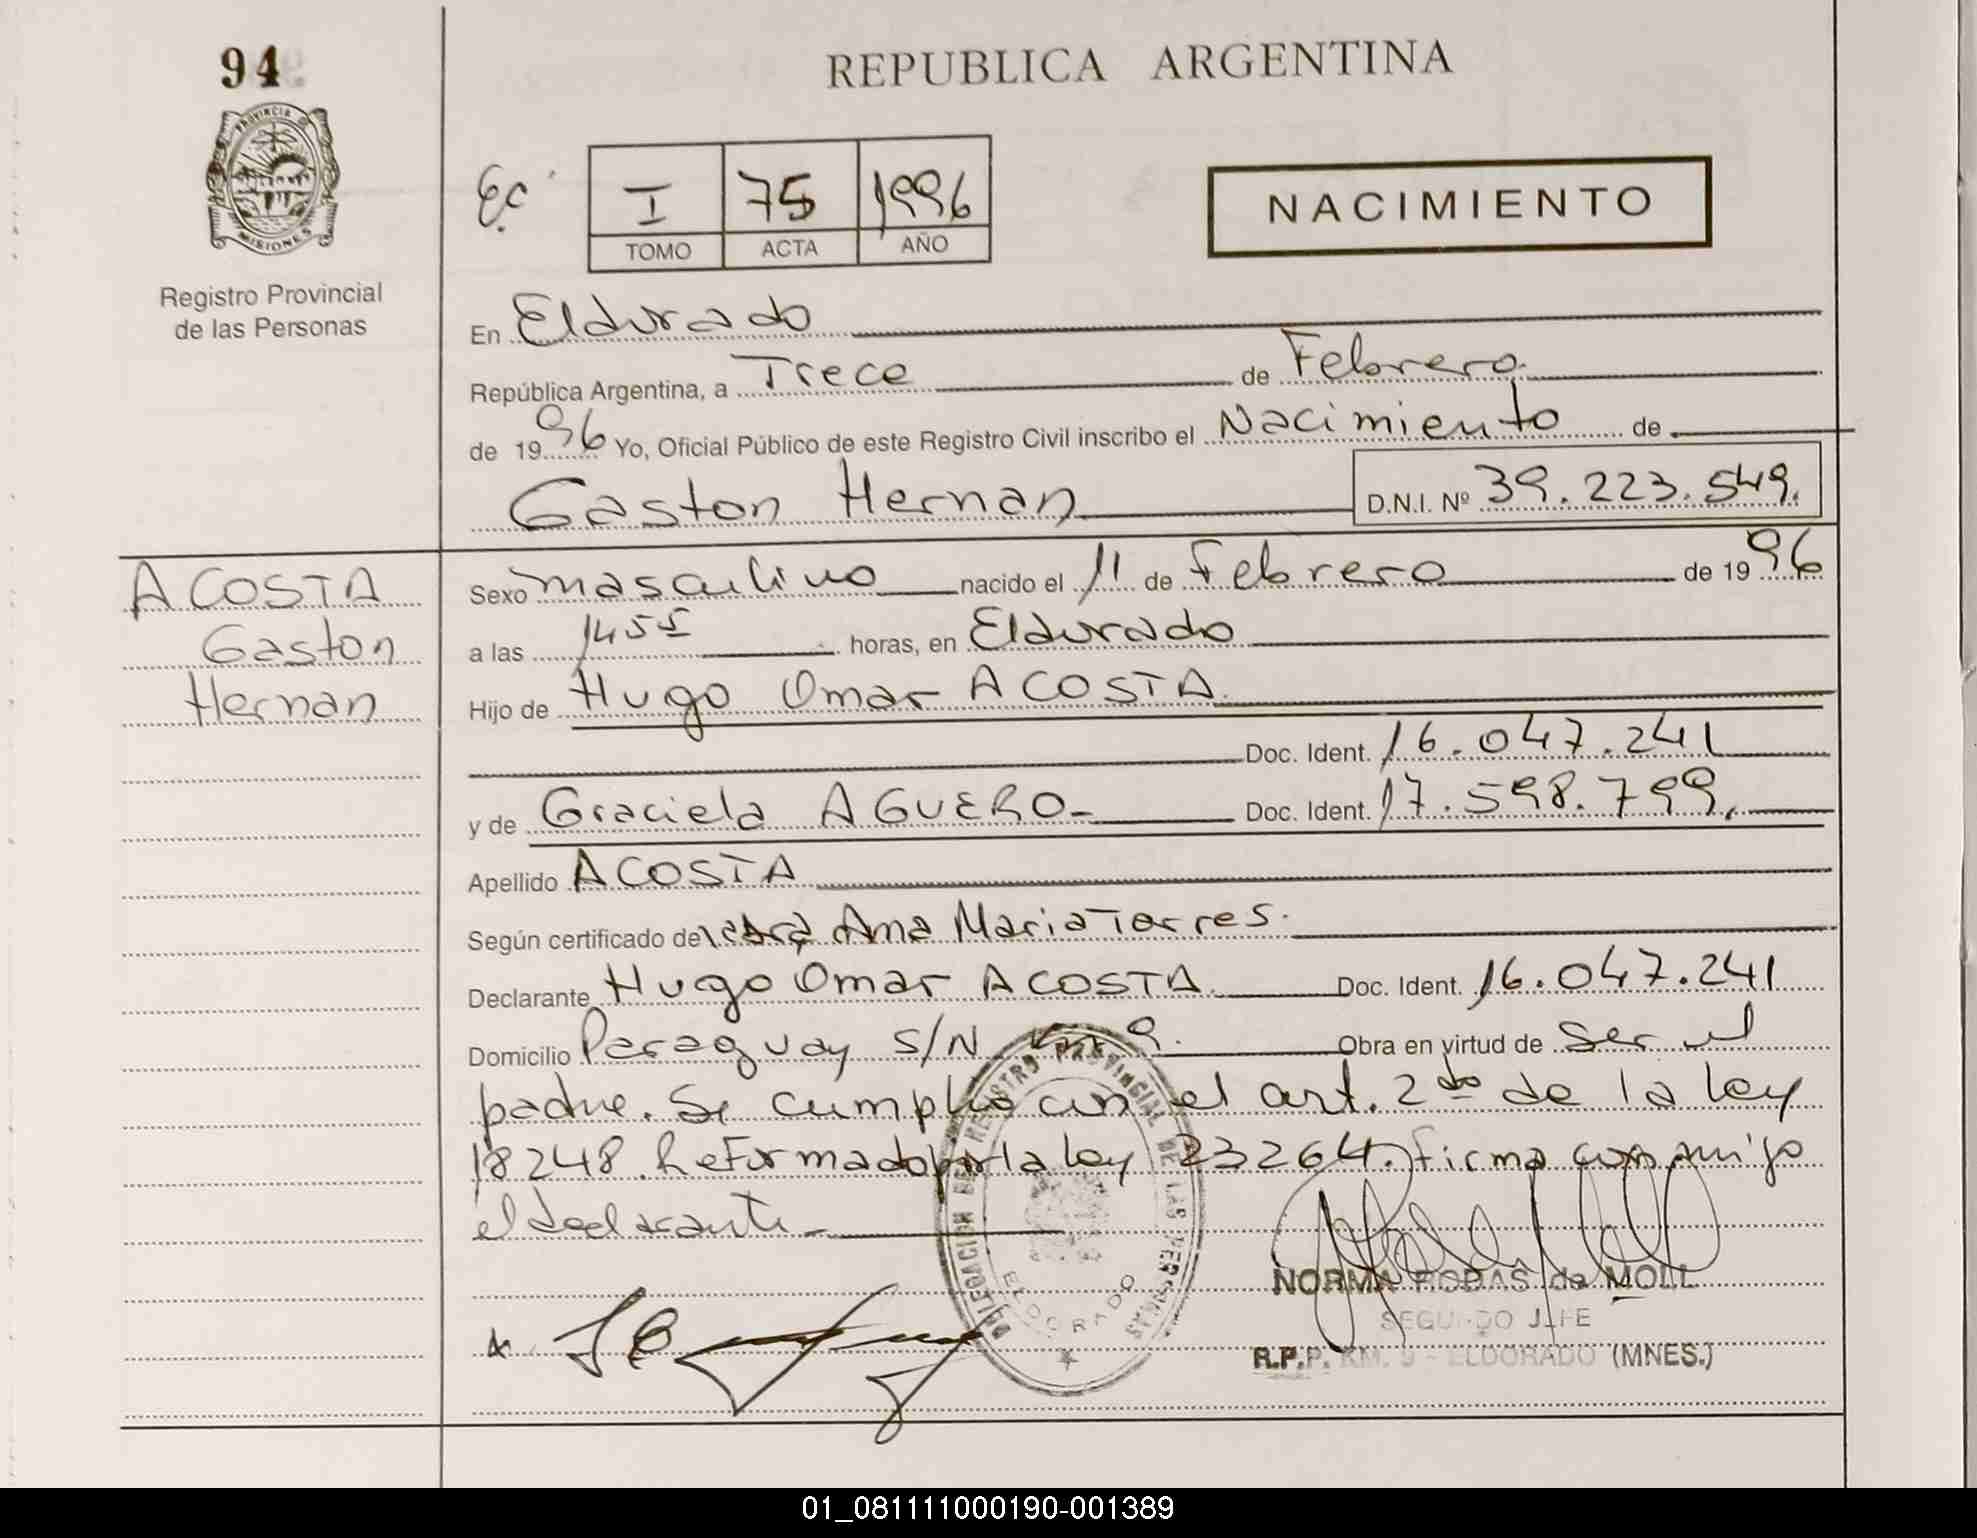 94
PROVINCIA DE
MISIONES
Registro Provincial
de las Personas
REPUBLICA ARGENTINA
I 75 1996
TOMO ACTA AÑO
NACIMIENTO
En Eldorado
República Argentina, a Trece de Febrero
de 1996 Yo, Oficial Público de este Registro Civil inscribo el Nacimiento de
Gaston Hernan D.N.I. Nº 39.223.549.
ACOSTA
Gaston
Hernan
Sexo masculino nacido el 11 de Febrero de 1996
a las 1455 horas, en Eldorado
Hijo de Hugo Omar ACOSTA
Doc. Ident. 16.047.241
y de Graciela AGUERO- Doc. Ident. 17.598.799.
Apellido ACOSTA
Según certificado de Ana Maria Torres.
Declarante Hugo Omar ACOSTA. Doc. Ident. 16.047.241
Domicilio Paraguay S/N 9. Obra en virtud de Ser el
padre. Se cumplio con el art. 2do de la ley
18248. Reformado por la ley 23264. Firma conmigo
el declarante-
DELEGACION DEL REGISTRO PROVINCIAL DE LAS PERSONAS
ELDORADO
NORMA RODAS de MOLL
SEGUNDO JEFE
R.P.P. KM. 9 - ELDORADO (MNES.)
01_081111000190-001389